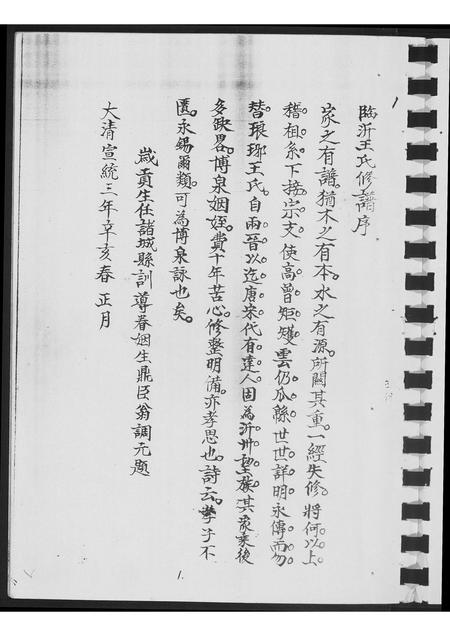 1
臨沂王氏修譜序
家之有譜。猶木之有本。水之有源。所關甚重。一經失修。將何以上。
稽祖系。下接宗支。使高曾矩矱。雲仍瓜緜。世世詳明。永傳而勿。
替。琅琊王氏。自兩晉以迄唐宋。代有達人。固為沂州望族。其家乘後
多缺畧。博泉姻姪。費十年苦心。修整明備。亦孝思也。詩云。孝子不
匱。永錫爾類。可為博泉詠也矣。
歲貢生任諸城縣訓導眷姻生鼎臣翁調元題
大清宣統三年辛亥春正月
1.